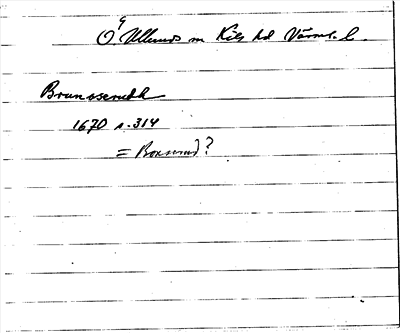 Ö Ullerud sn Kils hd Värml. l.
Brunsserudh
1670 s. 314
= Bonserud?